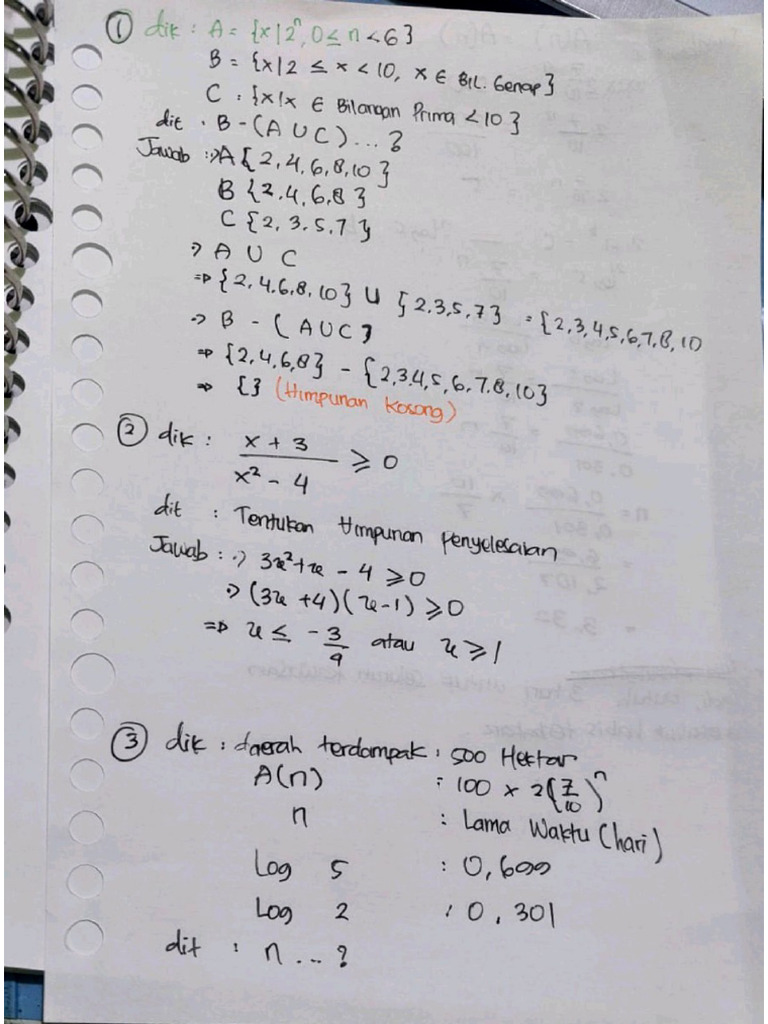 ① dik : A = {x | 2ⁿ, 0 ≤ n < 6}
B = {x | 2 ≤ x < 10, x ∈ BIL. Genap}
C : {x | x ∈ Bilangan Prima < 10}
dit : B - (A ∪ C) ... ?
Jawab : → A {2, 4, 6, 8, 10}
B {2, 4, 6, 8}
C {2, 3, 5, 7}
→ A ∪ C
⇒ {2, 4, 6, 8, 10} ∪ {2, 3, 5, 7} = {2, 3, 4, 5, 6, 7, 8, 10
→ B - (A ∪ C)
⇒ {2, 4, 6, 8} - {2, 3, 4, 5, 6, 7, 8, 10}
⇒ {} (Himpunan Kosong)
② dik : x + 3 / x² - 4 ≥ 0
dit : Tentukan Himpunan Penyelesaian
Jawab : → 3x² + x - 4 ≥ 0
→ (3x + 4)(x - 1) ≥ 0
⇒ x ≤ - 3/9 atau x ≥ 1
③ dik : daerah terdampak : 500 Hektar
A(n) : 100 × 2(7/10)ⁿ
n : Lama Waktu (hari)
Log 5 : 0,699
Log 2 : 0,301
dit : n ... ?